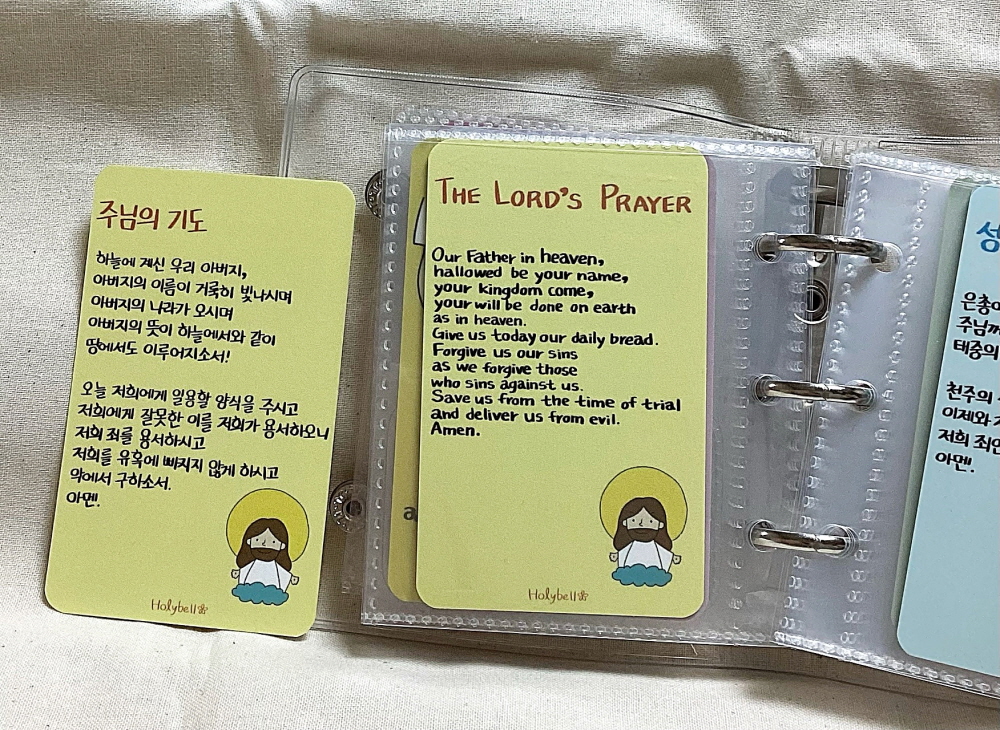 주님의 기도
하늘에 계신 우리 아버지,
아버지의 이름이 거룩히 빛나시며
아버지의 나라가 오시며
아버지의 뜻이 하늘에서와 같이
땅에서도 이루어지소서!
오늘 저희에게 일용할 양식을 주시고
저희에게 잘못한 이를 저희가 용서하오니
저희 죄를 용서하시고
저희를 유혹에 빠지지 않게 하시고
악에서 구하소서.
아멘!
Holybell
THE LORD'S PRAYER
Our Father in heaven,
hallowed be your name,
your kingdom come,
your will be done on earth
as in heaven.
Give us today our daily bread.
Forgive us our sins
as we forgive those
who sins against us.
Save us from the time of trial
and deliver us from evil.
Amen.
Holybell
a
성
은총이
주님께
태중의
천주의
이제와
저희 죄인
아멘.